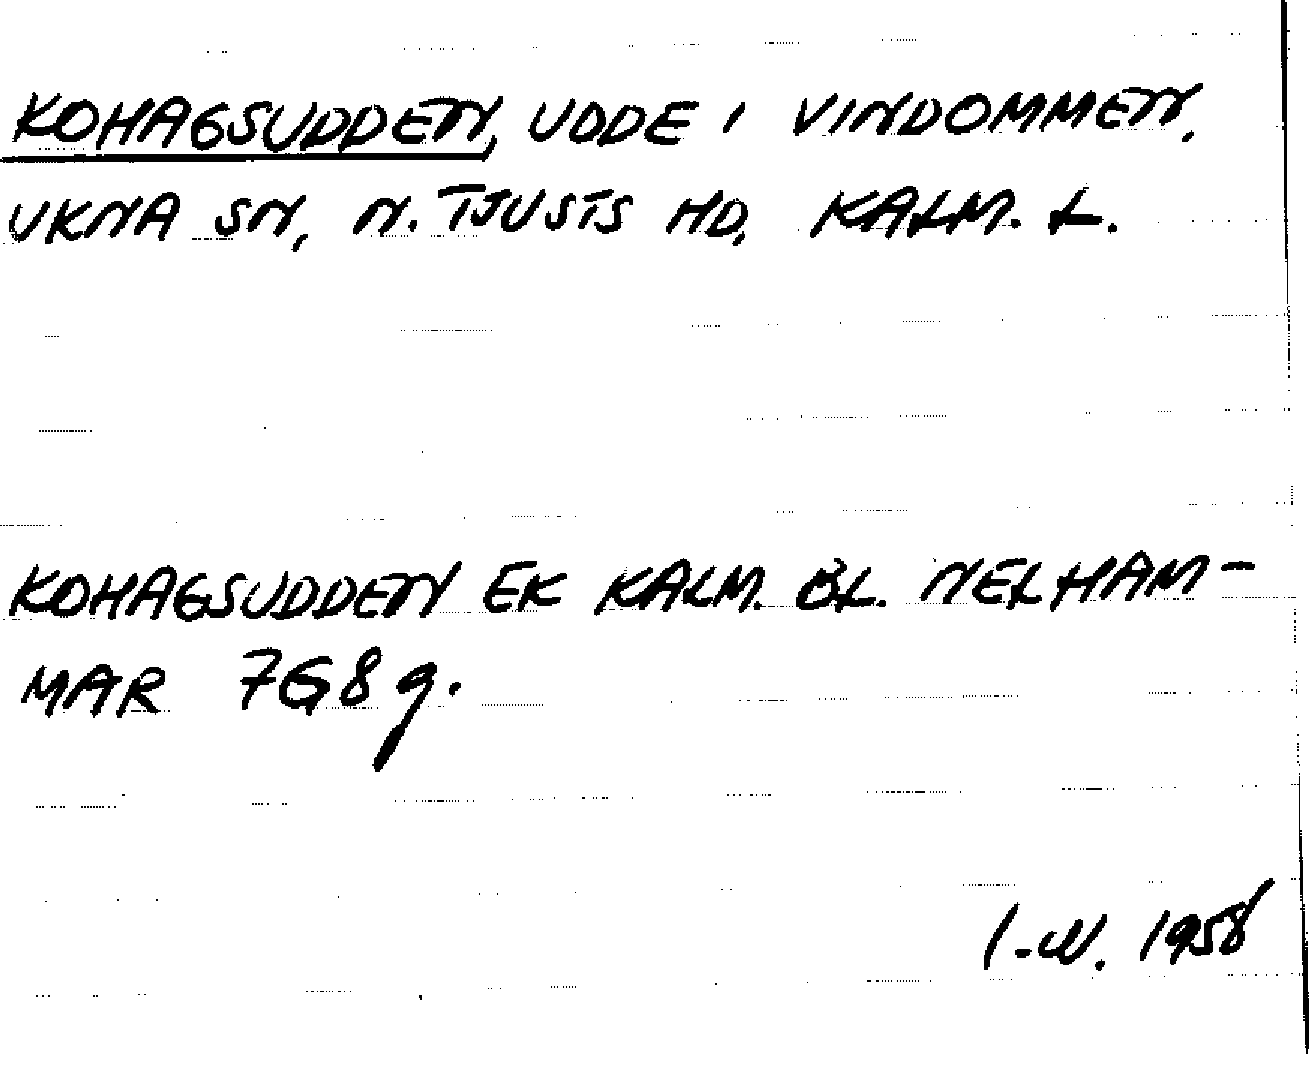 KOHAGSUDDEN, UDDE I VINDOMMEN,
UKNA SN, N. TJUSTS HD, KALM. L.
KOHAGSUDDEN EK KALM. BL. NELHAM-
MAR 7G8g.
I-W. 1958